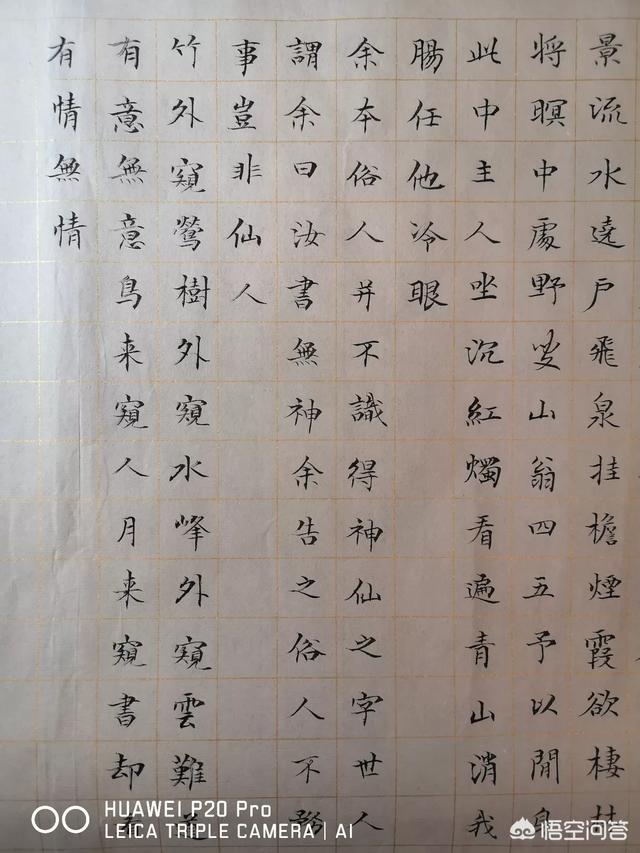 景流水遶户飛泉挂檐煙霞欲棲林
将暝中處野叟山翁四五予以閒身
此中主人坐沉紅燭看遍青山消我
腸任他冷眼
余本俗人并不識得神仙之字世人
謂余曰汝書無神余告之俗人不務
事豈非仙人
竹外窺鶯樹外窺水峰外窺雲難道
有意無意鳥来窺人月来窺書却
有情無情
HUAWEI P20 Pro
LEICA TRIPLE CAMERA | AI
悟空问答